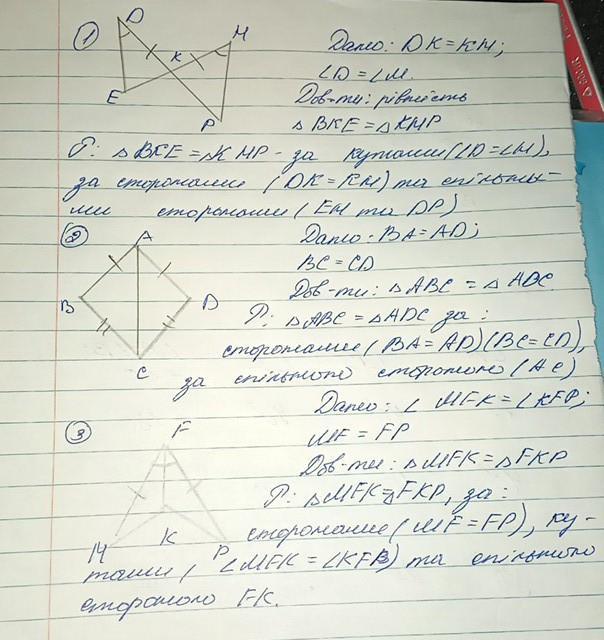 1
D
K
M
E
P
Дано: DK = KM;
∠D = ∠M.
Дов-ти: рівність
△BKE = △KMP
Р: △BKE = △KMP - за кутами (∠D = ∠M),
за сторонами (DK = KM) та спільни-
ми сторонами (EM та DP)
2
A
B
D
C
Дано: BA = AD;
BC = CD
Дов-ти: △ABC = △ADC
Р: △ABC = △ADC за:
сторонами (BA = AD) (BC = CD),
за спільною стороною (AC)
3
F
M
K
P
Дано: ∠MFK = ∠KFP;
MF = FP
Дов-ти: △MFK = △FKP
Р: △MFK = △FKP, за:
сторонами (MF = FP), ку-
тами (∠MFK = ∠KFB) та спільною
стороною FK.